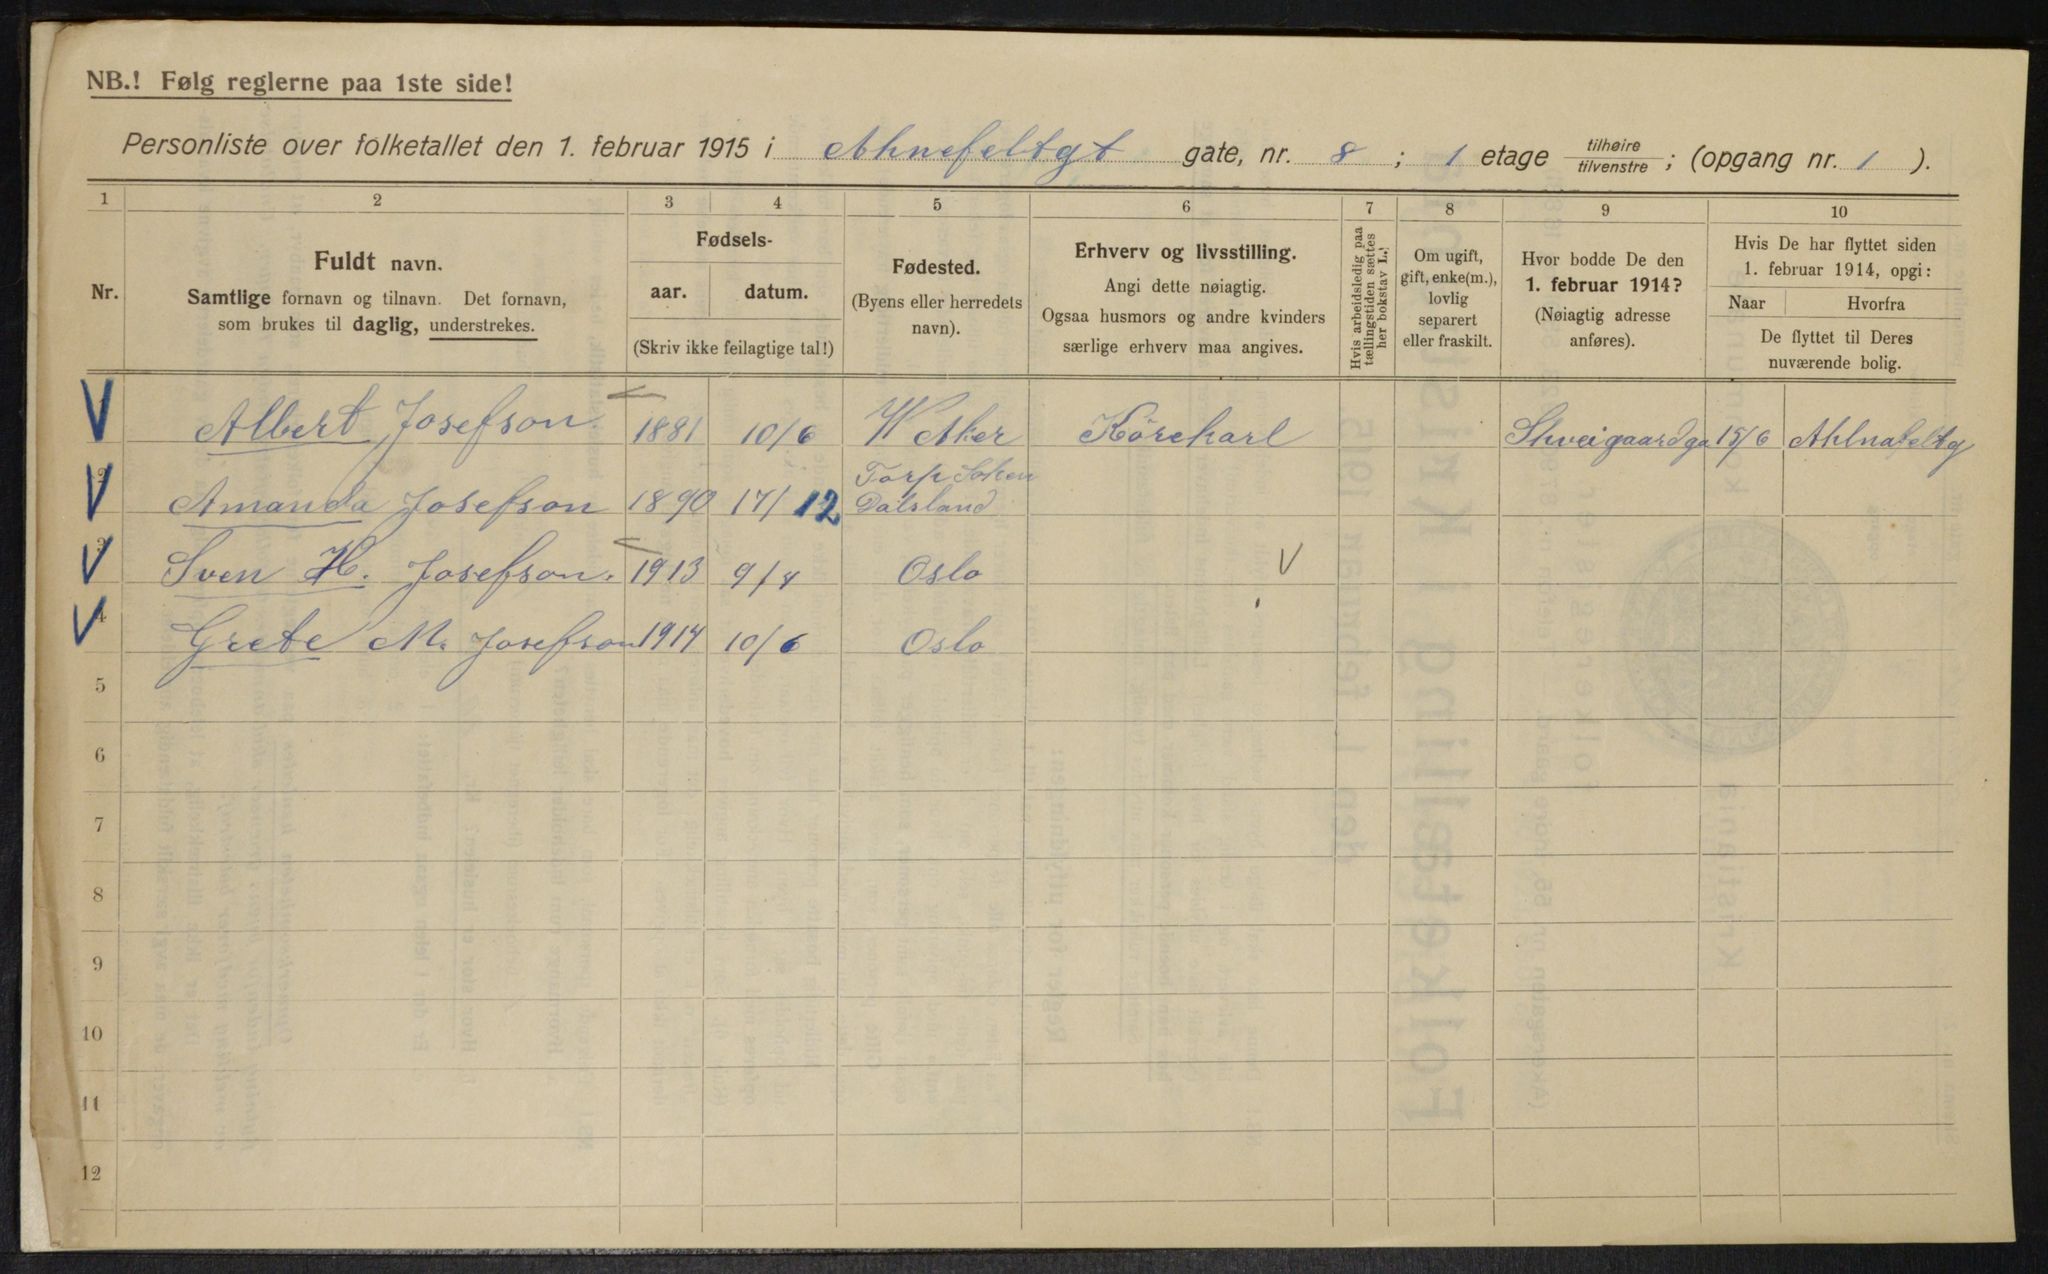 NB.! Følg reglerne paa 1ste side!
Personliste over folketallet den 1. februar 1915 i Ahnefeltgt gate, nr. 8 ; 1 etage tilhøire/tilvenstre ; (opgang nr. 1 ).
1 2 3 4 5 6 7 8 9 10
Nr.
Fuldt navn.
Samtlige fornavn og tilnavn. Det fornavn,
som brukes til daglig, understrekes.
Fødsels-
aar. datum.
(Skriv ikke feilagtige tal!)
Fødested.
(Byens eller herredets
navn).
Erhverv og livsstilling.
Angi dette nøiagtig.
Ogsaa husmors og andre kvinders
særlige erhverv maa angives.
Hvis arbeidsledig paa
tællingstiden sættes
her bokstav L.
Om ugift,
gift, enke(m.),
lovlig
separert
eller fraskilt.
Hvor bodde De den
1. februar 1914?
(Nøiagtig adresse
anføres).
Hvis De har flyttet siden
1. februar 1914, opgi:
Naar Hvorfra
De flyttet til Deres
nuværende bolig.
Albert Josefson. 1881 10/6 W Aker Körekarl Skveigaardga 15/6 Ahlnafeltg
2 Amanda Josefson 1890 17/12 Torp Soken
Dalsland
3 Sven H. Josefson. 1913 9/4 Oslo V
4 Grete M. Josefson 1914 10/6 Oslo
5
6
7
8
9
10
11
12